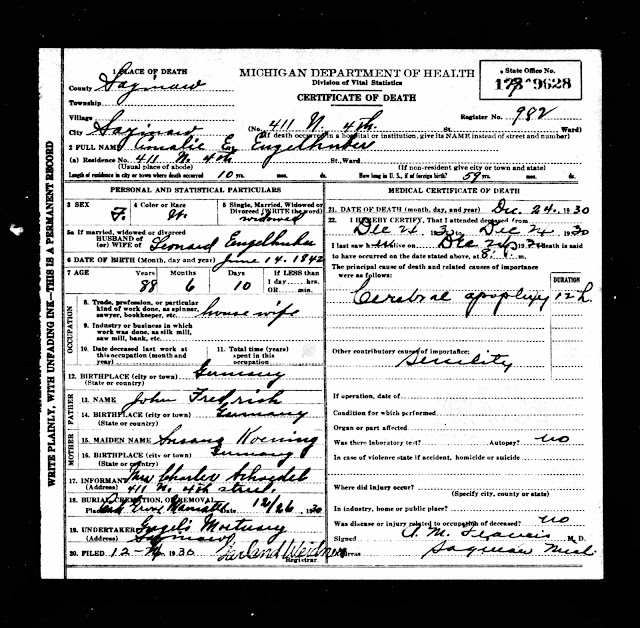 1 PLACE OF DEATH
County Saginaw
Township
Village
City Saginaw
MICHIGAN DEPARTMENT OF HEALTH
Division of Vital Statistics
CERTIFICATE OF DEATH
State Office No.
9628
Register No. 982
(No. 411 N. 4th St. Ward)
(If death occurred in a hospital or institution, give its NAME instead of street and number)
2 FULL NAME Amalie E. Engelhuber
(a) Residence No. 411 N. 4th St., Ward.
(Usual place of abode) (If non-resident give city or town and state)
Length of residence in city or town where death occurred 10 yrs. mos. ds. How long in U. S., if of foreign birth? 59 yrs. mos. ds.
PERSONAL AND STATISTICAL PARTICULARS
3 SEX F.
4 Color or Race W.
5 Single, Married, Widowed or Divorced (WRITE the word) widowed
5a If married, widowed or divorced
HUSBAND of
(or) WIFE of Leonard Engelhuber
6 DATE OF BIRTH (Month, day, year) June 14. 1842
7 AGE Years 88 Months 6 Days 10 If LESS than 1 day.... hrs. OR.... min.
OCCUPATION
8. Trade, profession, or particular kind of work done, as spinner, sawyer, bookkeeper, etc. housewife
9. Industry or business in which work was done, as silk mill, saw mill, bank, etc.
10. Date deceased last work at this occupation (month and year)
11. Total time (years) spent in this occupation
12. BIRTHPLACE (city or town) Germany
(State or country)
FATHER
13. NAME John
14. BIRTHPLACE (city or town) Germany
(State or country)
MOTHER
15. MAIDEN NAME Susana Koening
16. BIRTHPLACE (city or town) Germany
(State or country)
17. INFORMANT Mrs Charles
(Address) 411 N. 4th street
18. BURIAL, CREMATION, OR REMOVAL
Place Date 12/26 1930
19. UNDERTAKER Mortuary
(Address) Saginaw
20. FILED 12- 1930
Registrar.
MEDICAL CERTIFICATE OF DEATH
21. DATE OF DEATH (month, day, and year) Dec. 24. 1930
22. I HEREBY CERTIFY, That I attended deceased from
Dec 24 1930 to Dec 24 1930
I last saw alive on Dec 24 1930 death is said
to have occurred on the date stated above, at 8. m.
The principal cause of death and related causes of importance were as follows:
DURATION
Cerebral apoplexy 12 h
Other contributory causes of importance:
Senility
If operation, date of
Condition for which performed
Organ or part affected
Was there laboratory test? Autopsy? no
In case of violence state if accident, homicide or suicide
Where did injury occur?
(Specify city, county or state)
In industry, home or public place?
Was disease or injury related to occupation of deceased? no
Signed A. M. M. D.
Address Saginaw Mich.
WRITE PLAINLY, WITH UNFADING INK—THIS IS A PERMANENT RECORD